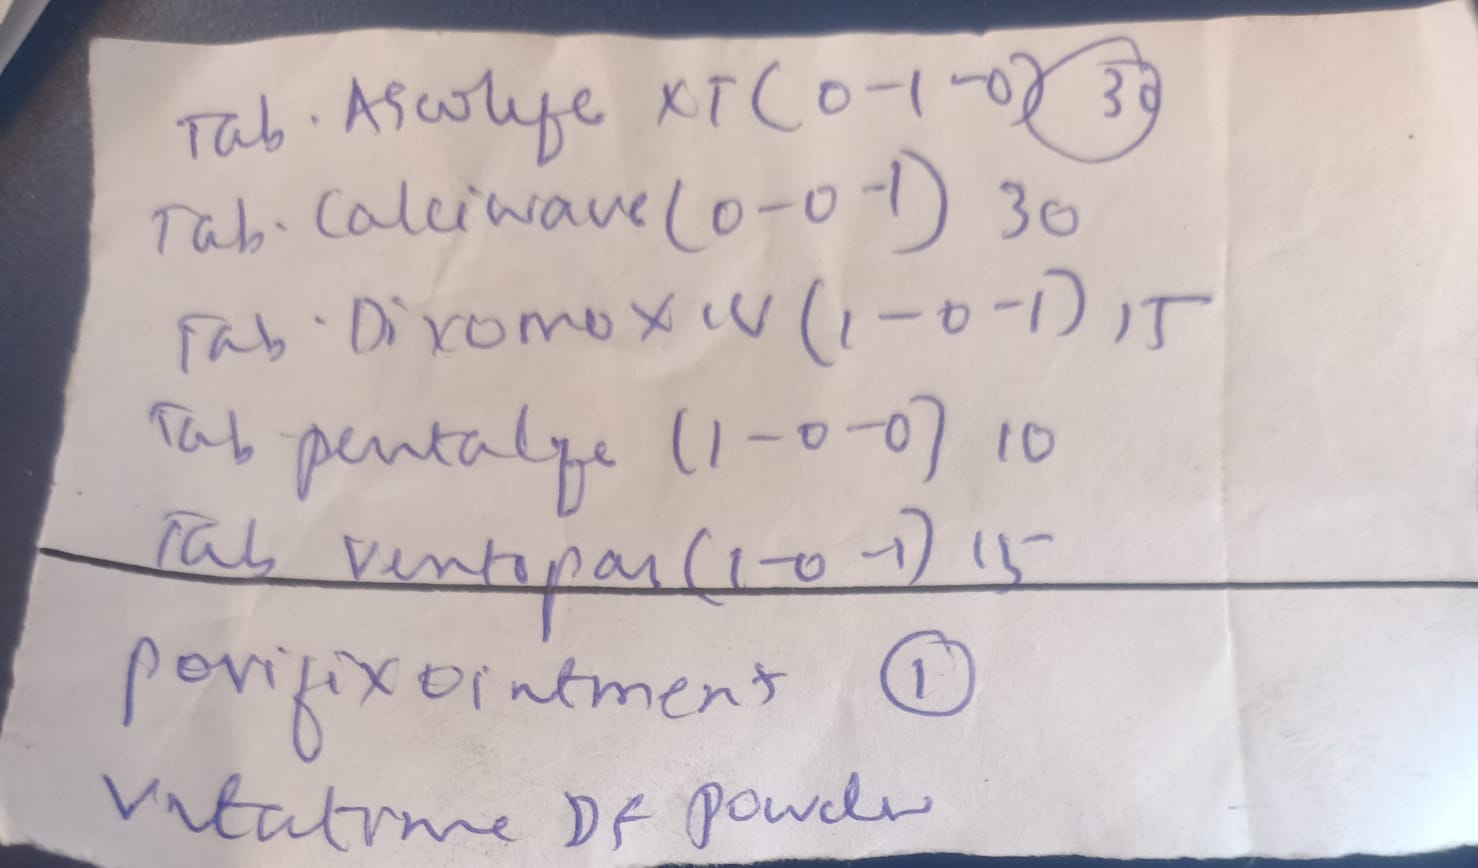 Tab. Ascolife XT (0-1-0) 30
Tab. Calciwave (0-0-1) 30
Tab. Dixomox CV (1-0-1) 15
Tab pentalife (1-0-0) 10
Tab ventopar (1-0-1) 15
povifix ointment 1
DF powder